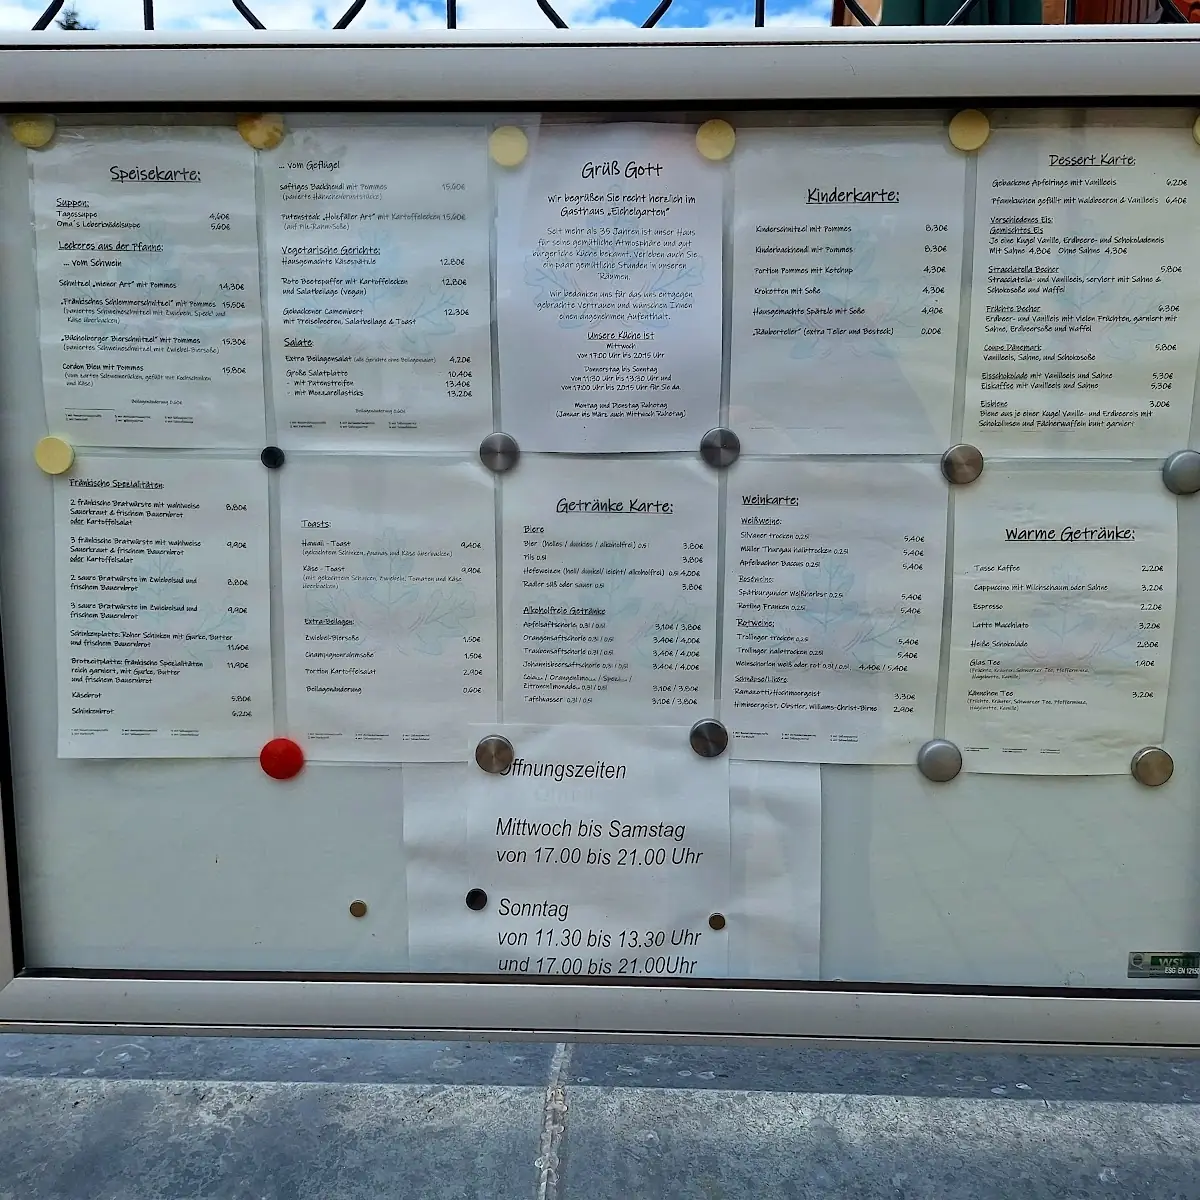 Speisekarte:
Suppen:
Tagessuppe 4,60€
Oma´s Leberknödelsuppe 5,60€
Leckeres aus der Pfanne:
... vom Schwein
Schnitzel „Wiener Art" mit Pommes 14,30€
„Fränkisches Schlemmerschnitzel" mit Pommes 15,50€
(paniertes Schweineschnitzel mit Zwiebel, Speck und
Käse überbacken)
„Büchelberger Bierschnitzel" mit Pommes 15,30€
(paniertes Schweineschnitzel mit Zwiebel-Biersoße)
Cordon Bleu mit Pommes 15,80€
(vom zarten Schweinerücken, gefüllt mit Kochschinken
und Käse)
Beilagenänderung 0,60€
... vom Geflügel
saftiges Backhendl mit Pommes 15,60€
(panierte Hähnchenbruststücke)
Putensteak „Holzfäller Art" mit Kartoffelecken 15,60€
(auf Pilz-Rahm-Soße)
Vegetarische Gerichte:
Hausgemachte Käsespätzle 12,80€
Rote Beetepuffer mit Kartoffelecken 12,80€
und Salatbeilage (vegan)
Gebackener Camembert 12,30€
mit Preiselbeeren, Salatbeilage & Toast
Salate:
Extra Beilagensalat (alle Gerichte ohne Beilagensalat) 4,20€
Große Salatplatte 10,40€
- mit Putenstreifen 13,40€
- mit Mozzarellasticks 13,20€
Beilagenänderung 0,60€
Grüß Gott
Wir begrüßen Sie recht herzlich im
Gasthaus „Eichelgarten"
Seit mehr als 35 Jahren ist unser Haus
für seine gemütliche Atmosphäre und gut
bürgerliche Küche bekannt. Verleben auch Sie
ein paar gemütliche Stunden in unseren
Räumen.
Wir bedanken uns für das uns entgegen
gebrachte Vertrauen und wünschen Ihnen
einen angenehmen Aufenthalt.
Unsere Küche ist
Mittwoch
von 17:00 Uhr bis 20:15 Uhr
Donnerstag bis Sonntag
von 11:30 Uhr bis 13:30 Uhr und
von 17:00 Uhr bis 20:15 Uhr für Sie da.
Montag und Dienstag Ruhetag
(Januar bis März auch Mittwoch Ruhetag)
Kinderkarte:
Kinderschnitzel mit Pommes 8,30€
Kinderbackhendl mit Pommes 8,30€
Portion Pommes mit Ketchup 4,30€
Kroketten mit Soße 4,30€
Hausgemachte Spätzle mit Soße 4,90€
„Räuberteller" (extra Teller und Besteck) 0,00€
Dessert Karte:
Gebackene Apfelringe mit Vanilleeis 6,20€
Pfannkuchen gefüllt mit Waldbeeren & Vanilleeis 6,40€
Verschiedenes Eis:
Gemischtes Eis
Je eine Kugel Vanille, Erdbeere- und Schokoladeneis
Mit Sahne 4,80€ Ohne Sahne 4,30€
Stracciatella Becher 5,80€
Stracciatella- und Vanilleeis, serviert mit Sahne &
Schokosoße und Waffel
Früchte Becher 6,30€
Erdbeer- und Vanilleeis mit vielen Früchten, garniert mit
Sahne, Erdbeersoße und Waffel
Coupe Dänemark 5,80€
Vanilleeis, Sahne, und Schokosoße
Eisschokolade mit Vanilleeis und Sahne 5,30€
Eiskaffee mit Vanilleeis und Sahne 5,30€
Eisbiene 3,00€
Biene aus je einer Kugel Vanille- und Erdbeereis mit
Schokolinsen und Fächerwaffeln bunt garniert
Fränkische Spezialitäten:
2 fränkische Bratwürste mit wahlweise 8,80€
Sauerkraut & frischem Bauernbrot
oder Kartoffelsalat
3 fränkische Bratwürste mit wahlweise 9,90€
Sauerkraut & frischem Bauernbrot
oder Kartoffelsalat
2 saure Bratwürste im Zwiebelsud und 8,80€
frischem Bauernbrot
3 saure Bratwürste im Zwiebelsud und 9,90€
frischem Bauernbrot
Schinkenplatte: Roher Schinken mit Gurke, Butter
und frischem Bauernbrot 11,60€
Brotzeitplatte: fränkische Spezialitäten 11,90€
reich garniert, mit Gurke, Butter
und frischem Bauernbrot
Käsebrot 5,80€
Schinkenbrot 6,20€
Toasts:
Hawaii - Toast 9,40€
(gekochtem Schinken, Ananas und Käse überbacken)
Käse - Toast 9,90€
(mit gekochtem Schinken, Zwiebeln, Tomaten und Käse
überbacken)
Extra-Beilagen:
Zwiebel-Biersoße 1,50€
Champignonrahmsoße 1,50€
Portion Kartoffelsalat 2,90€
Beilagenänderung 0,60€
Getränke Karte:
Biere
Bier (helles / dunkles / alkoholfrei) 0,5l 3,80€
Pils 0,5l 3,80€
Hefeweizen (hell/ dunkel/ leicht/ alkoholfrei) 0,5l 4,00€
Radler süß oder sauer 0,5l 3,80€
Alkoholfreie Getränke
Apfelsaftschorle 0,3l / 0,5l 3,10€ / 3,80€
Orangensaftschorle 0,3l / 0,5l 3,40€ / 4,00€
Traubensaftschorle 0,3l / 0,5l 3,40€ / 4,00€
Johannisbeersaftschorle 0,3l / 0,5l 3,40€ / 4,00€
Cola / Orangenlimo / Spezi /
Zitronenlimonade 0,3l / 0,5l 3,10€ / 3,80€
Tafelwasser 0,3l / 0,5l 3,10€ / 3,80€
Weinkarte:
Weißweine:
Silvaner trocken 0,25l 5,40€
Müller Thurgau halbtrocken 0,25l 5,40€
Apfelbacher Bacchus 0,25l 5,40€
Roséweine:
Spätburgunder Weißherbst 0,25l 5,40€
Rotling Franken 0,25l 5,40€
Rotweine:
Trollinger trocken 0,25l 5,40€
Trollinger halbtrocken 0,25l 5,40€
Weinschorlen weiß oder rot 0,3l / 0,5l 4,40€ / 5,40€
Schnäpse/Liköre
Ramazotti/Hochmoorgeist 3,30€
Himbeergeist, Obstler, Williams-Christ-Birne 2,90€
Warme Getränke:
Tasse Kaffee 2,20€
Cappuccino mit Milchschaum oder Sahne 3,20€
Espresso 2,20€
Latte Macchiato 3,20€
Heiße Schokolade 2,80€
Glas Tee 1,90€
(Früchte, Kräuter, Schwarzer Tee, Pfefferminze,
Hagebutte, Kamille)
Kännchen Tee 3,20€
(Früchte, Kräuter, Schwarzer Tee, Pfefferminze,
Hagebutte, Kamille)
Öffnungszeiten
Mittwoch bis Samstag
von 17.00 bis 21.00 Uhr
Sonntag
von 11.30 bis 13.30 Uhr
und 17.00 bis 21.00Uhr
ESG EN 1215